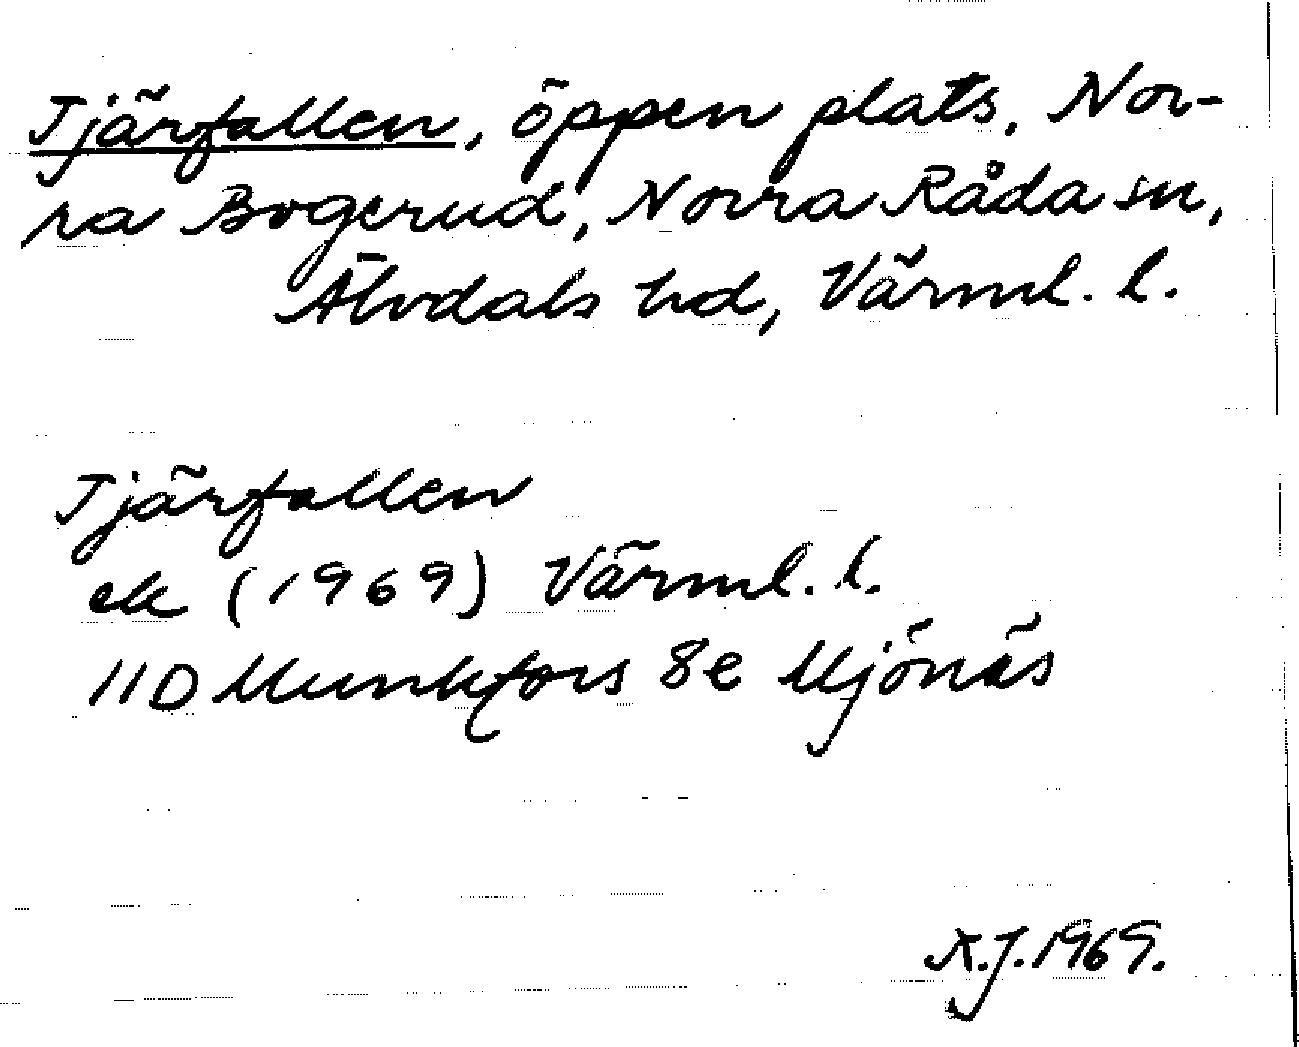 Tjärfallen, öppen plats, Nor-
ra Bogerud, Norra Råda sn,
Älvdals hd, Värml. l.
Tjärfallen
ek (1969) Värml. l.
11D Munkfors 8e Mjönäs
A.J. 1969.